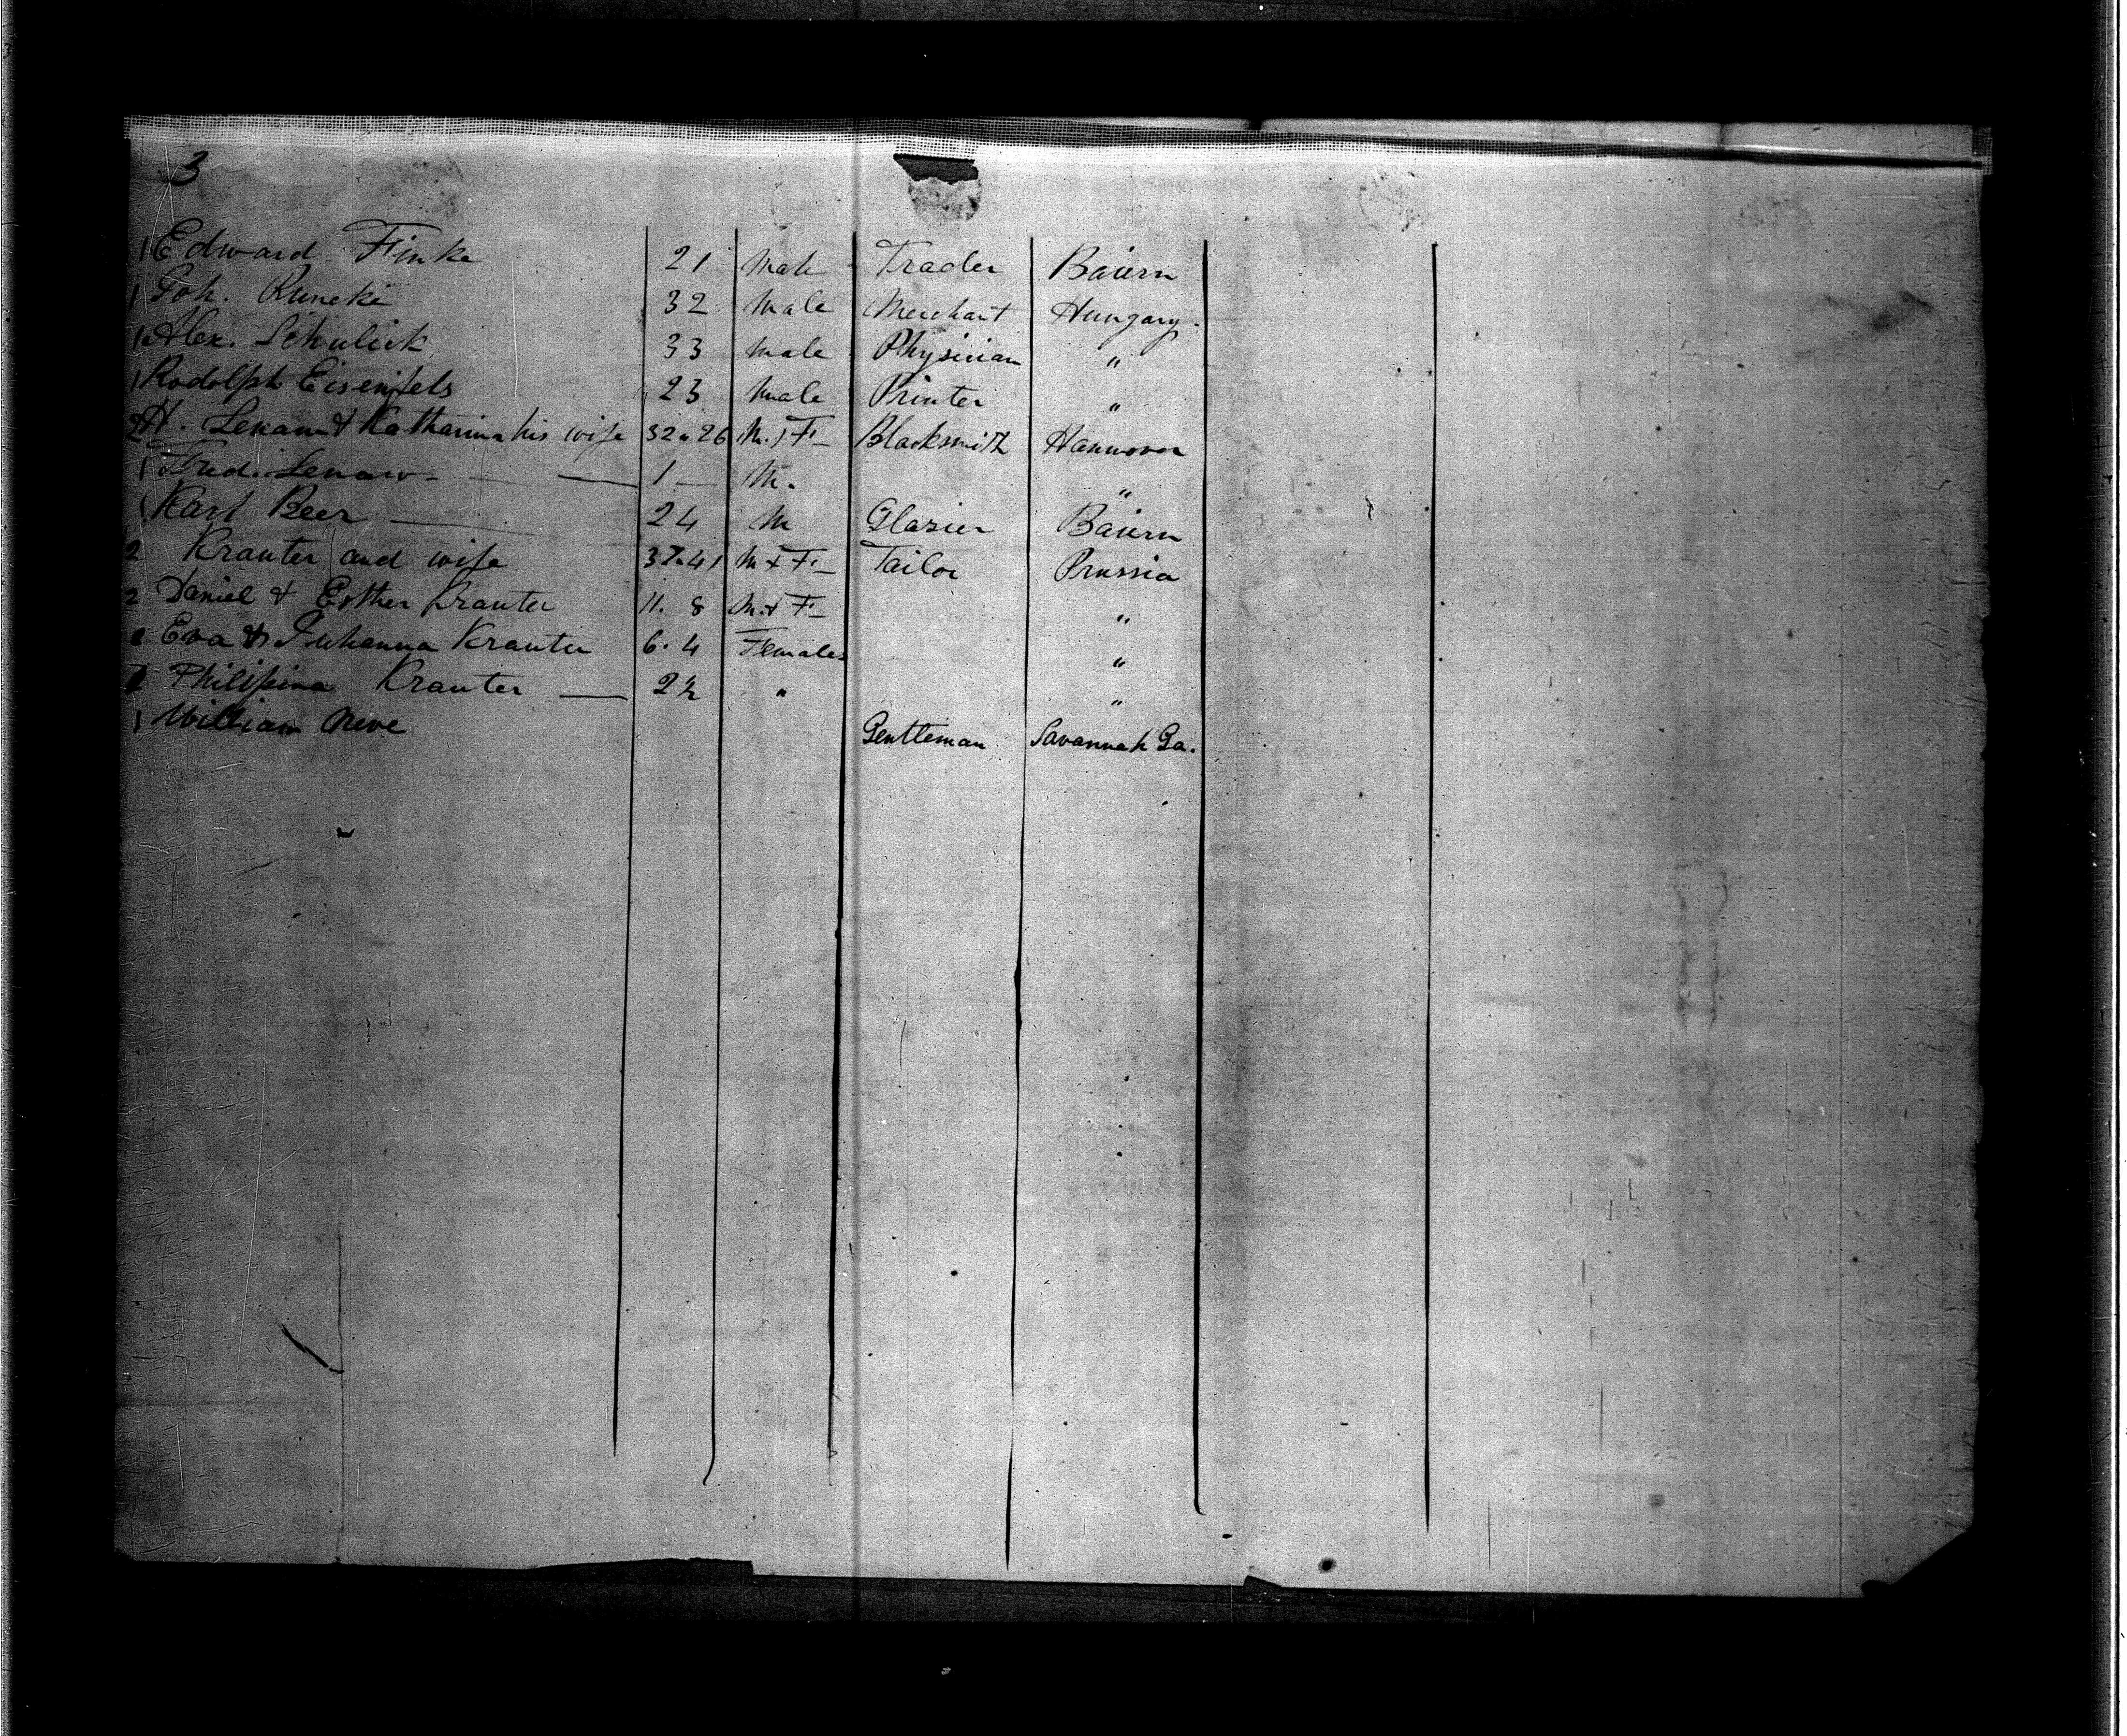 3
1 Edward Finke 21 Male Trader Baiern
1 Joh. Runcki 32 Male Merchant Hungary.
1 Alex. Schulick 33 Male Physician "
1 Rodolph Eisenfels 23 Male Printer "
2 H. Lenau & Katharina his wife 32 & 26 M. & F. Blacksmith Hannover
1 Fred. Lenaw 1 M. "
1 Karl Beer 24 M Glazier Baiern
2 Krauter and wife 37 & 41 M & F. Tailor Prussia
2 Daniel & Esther Krauter 11. 8 M. & F "
Eva & Juhanna Krauter 6. 4 Females "
Philipina Krauter 2½ " "
1 William Neve Gentleman Savannah Ga.